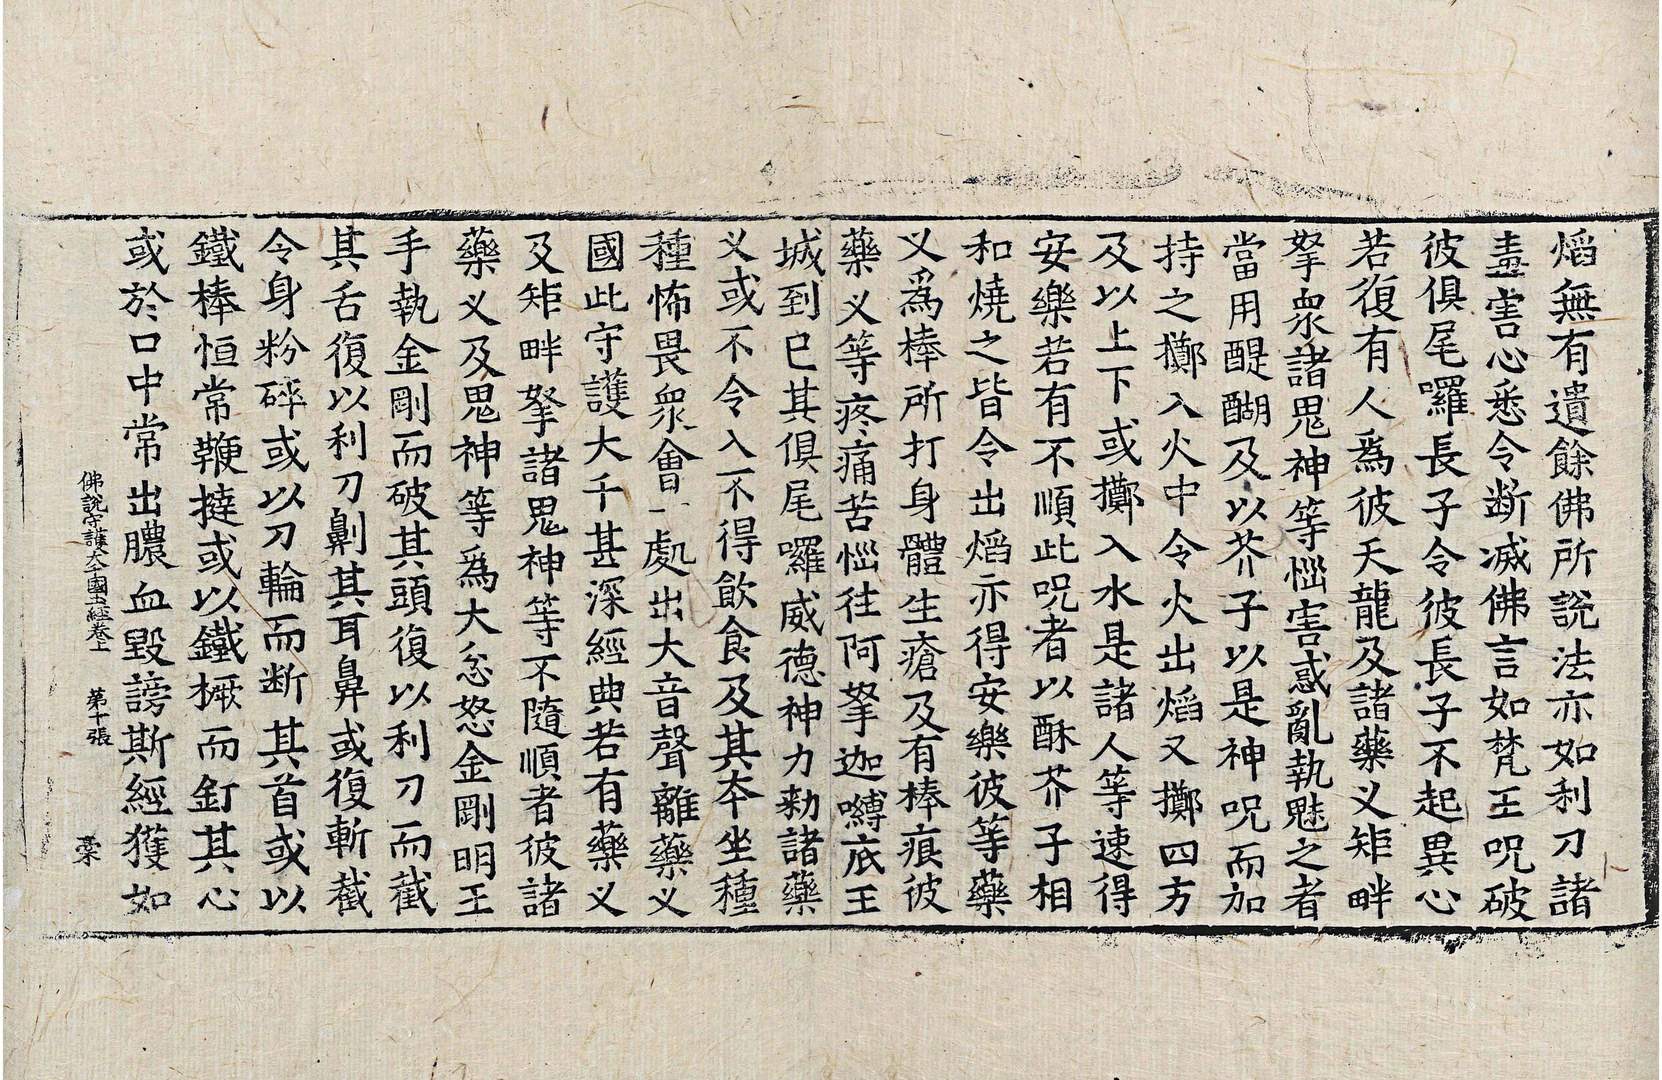 熖無有遺餘佛所說法亦如利刀諸
盡害心悉令断滅佛言如梵王呪破
彼俱尾囉長子令彼長子不起異心
若復有人爲彼天龍及諸藥叉矩畔
拏衆諸鬼神等惱害惑亂執魅之者
當用醍醐及以芥子以是神呪而加
持之擲入火中令火出熖又擲四方
及以上下或擲入水是諸人等速得
安樂若有不順此呪者以酥芥子相
和燒之皆令出熖亦得安樂彼等藥
叉爲棒所打身體生瘡及有棒痕彼
藥叉等疼痛苦惱往阿拏迦嚩底王
城到已其俱尾囉威德神力勑諸藥
叉或不令入不得飲食及其本坐種
種怖畏衆會一處出大音聲離藥叉
國此守護大千甚深經典若有藥叉
及矩畔拏諸鬼神等不隨順者彼諸
藥叉及鬼神等爲大忿怒金剛明王
手執金剛而破其頭復以利刀而截
其舌復以利刀劓其耳鼻或復斬截
令身粉碎或以刀輪而断其首或以
鐵棒恒常鞭撻或以鐵橛而釘其心
或於口中常出膿血毀謗斯經獲如
佛說守護大千國土經卷上 第十張 槀